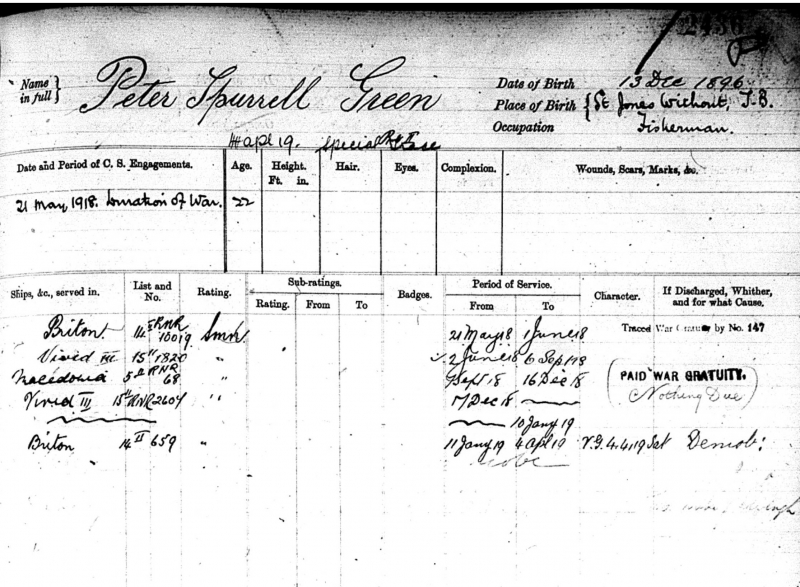 Name in full } Peter Spurrell Green
Date of Birth 13 Dec 1896
Place of Birth { St Jones Without, T.B.
Occupation Fisherman.
4 Apl 19. Special Case
Date and Period of C. S. Engagements. Age. Height. Ft. in. Hair. Eyes. Complexion. Wounds, Scars, Marks, &c.
21 May 1918. Duration of War. 22
Ships, &c., served in. List and No. Rating. Sub-ratings. Rating. From To Badges. Period of Service. From To Character. If Discharged, Whither, and for what Cause.
Briton RNR 10019 Smn 21 May 18 1 June 18 Traced War Gratuity by No. 147
Vivid III 15 1820 " 2 June 18 6 Sept 18
Macedonia 5 RNR 68 " 7 Sept 18 16 Dec 18 PAID WAR GRATUITY.
Vivid III 15 RNR 2604 " 17 Dec 18 (Nothing Due)
10 Jany 19
Briton 14 II 659 " 11 Jany 19 4 Apl 19 V.G. 4.4.19 Sat Demob: